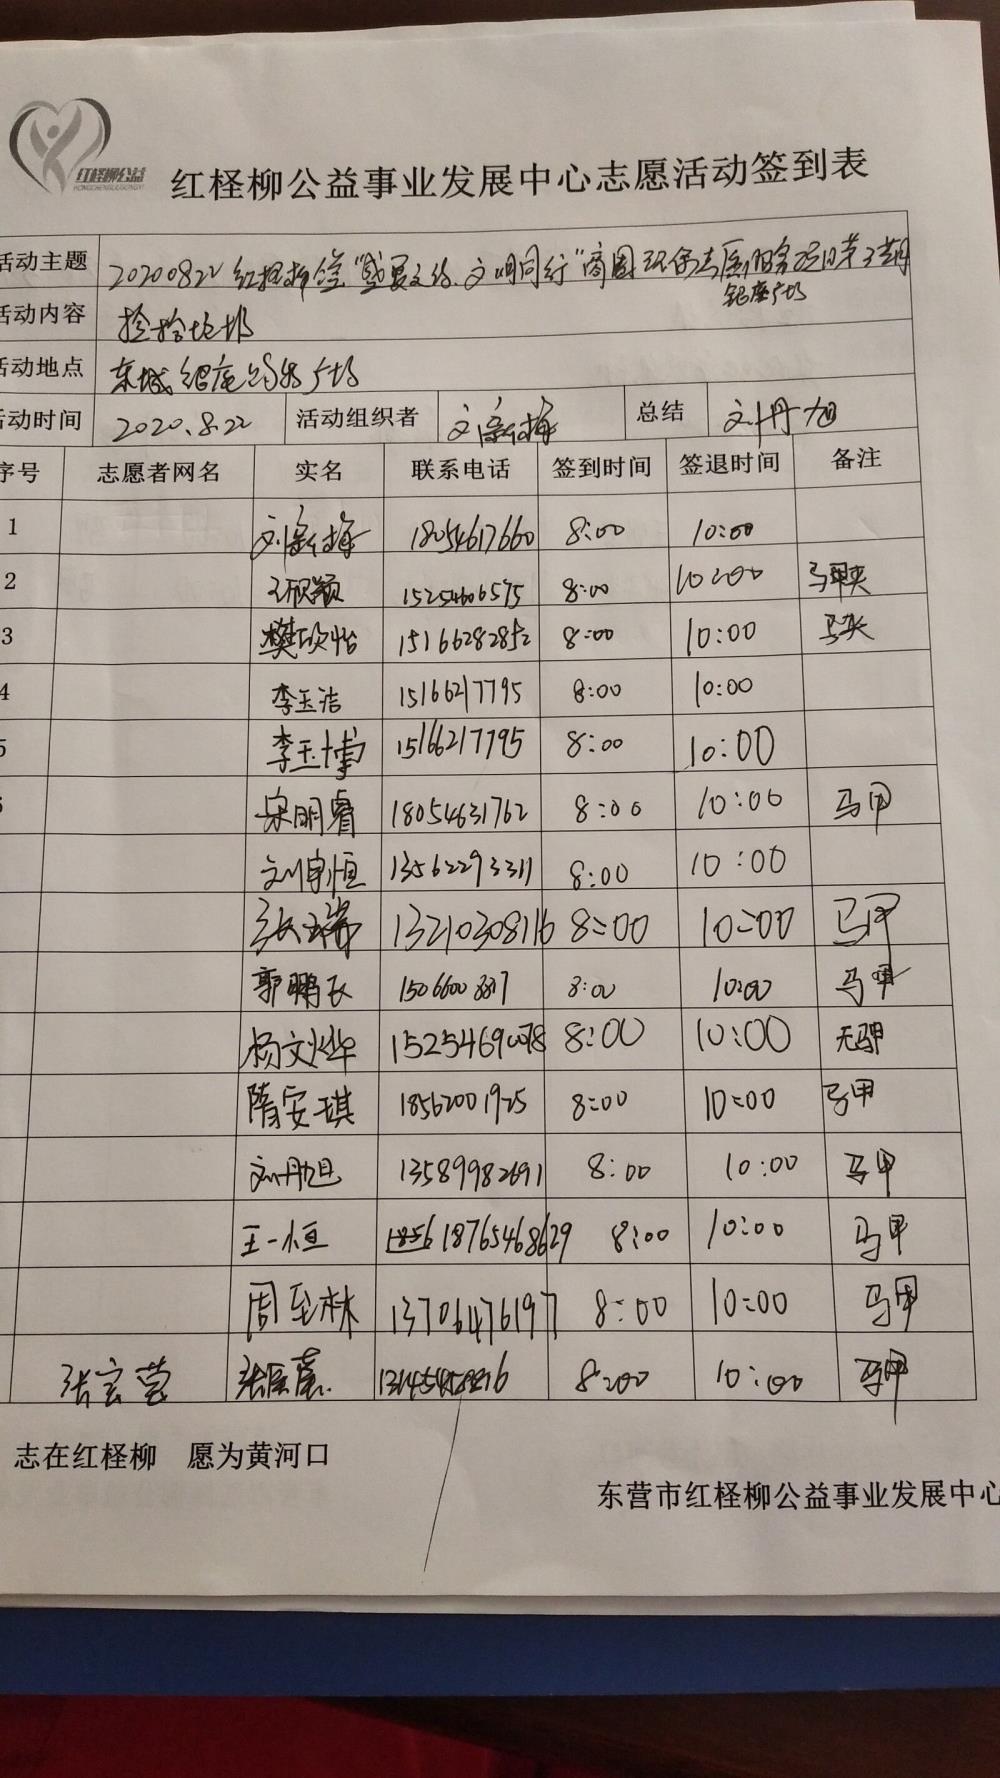 红柽柳公益
HONGCHENGLIUGONGYI
红柽柳公益事业发展中心志愿活动签到表
活动主题 20200822 红柽柳公益"盛夏文治、文明同行"商圈环保志愿服务 第3期
银座广场
活动内容 捡拾垃圾
活动地点 东城银座 广场
活动时间 2020.8.22 活动组织者 刘新梅 总结 刘丹旭
序号 志愿者网名 实名 联系电话 签到时间 签退时间 备注
1 刘新梅 18054617660 8:00 10:00
2 王欣颖 15254606575 8:00 10:00 马甲夹
3 樊欣怡 15166282852 8:00 10:00 马夹
4 李玉洁 15166217795 8:00 10:00
5 李玉博 15166217795 8:00 10:00
宋明睿 18054631762 8:00 10:00 马甲
刘宇恒 13562293311 8:00 10:00
张玉瑞 13210308116 8:00 10:00 马甲
郭鹏 8:00 10:00 马甲
杨文烨 8:00 10:00 无马甲
隋安琪 18562001925 8:00 10:00 马甲
刘丹旭 13589982691 8:00 10:00 马甲
王一恒 18765468629 8:00 10:00 马甲
周至林 13706476197 8:00 10:00 马甲
张宝莹 8:00 10:00 马甲
志在红柽柳 愿为黄河口
东营市红柽柳公益事业发展中心